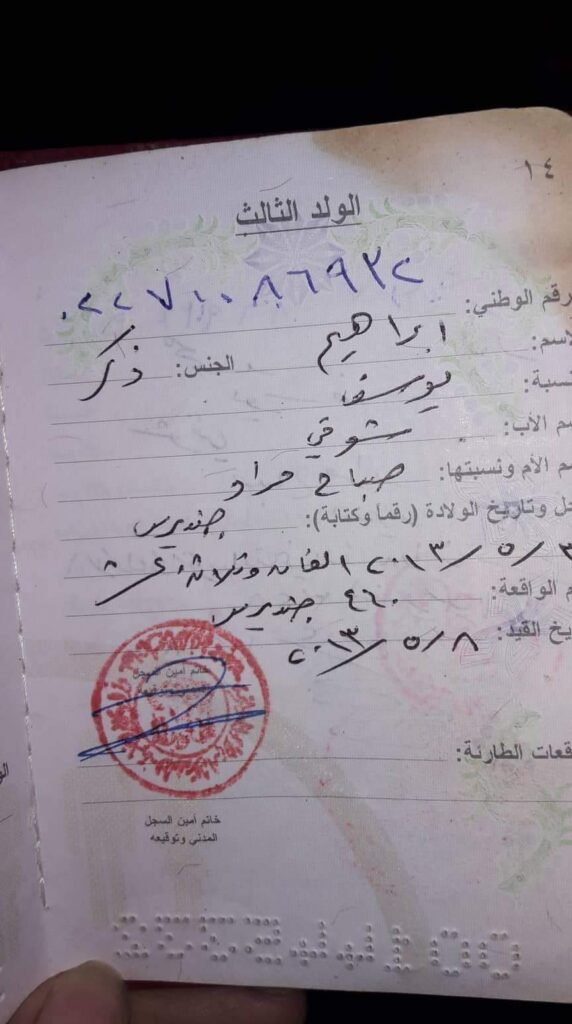 ١٤
الولد الثالث
رقم الوطني: ٠٢٢٧١٠٠٨٦٩٣٢
لاسم: ابراهيم الجنس: ذكر
نسبة: يوسف
م الأب: شوقي
م الأم ونسبتها: صباح مراد
وتاريخ الولادة (رقما وكتابة): جنديرس
٣ / ٥ / ٢٠١٣ الفان وثلاثة عشر
م الواقعة: ٤٦٠ جنديرس
يخ القيد: ٨ / ٥ / ٢٠١٣
خاتم أمين السجل
قعات الطارئة:
خاتم أمين السجل
المدني وتوقيعه